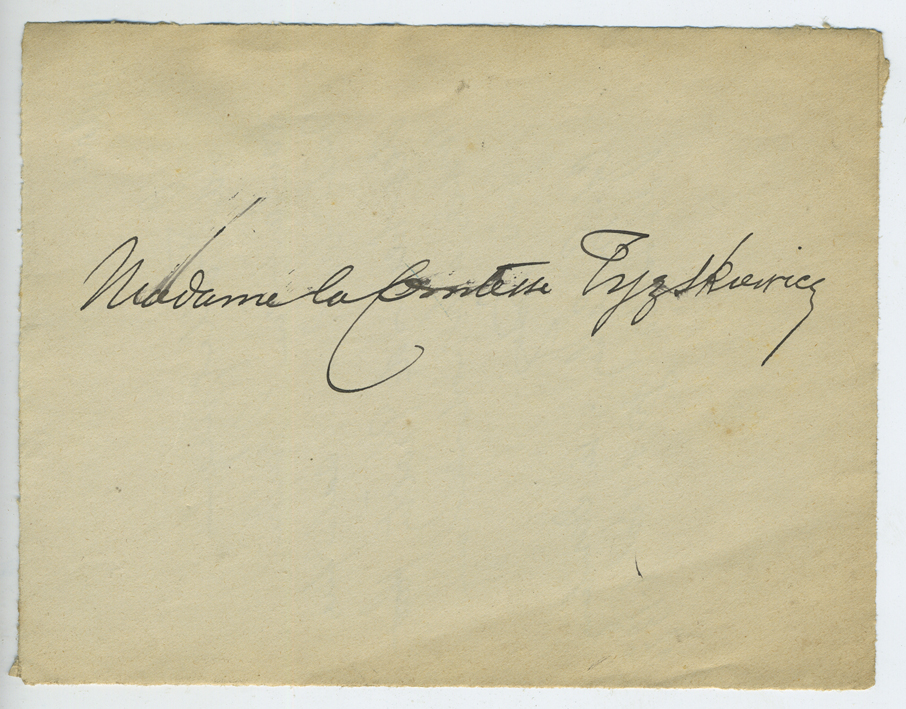 Madame la Comtesse Tyzskiewicz